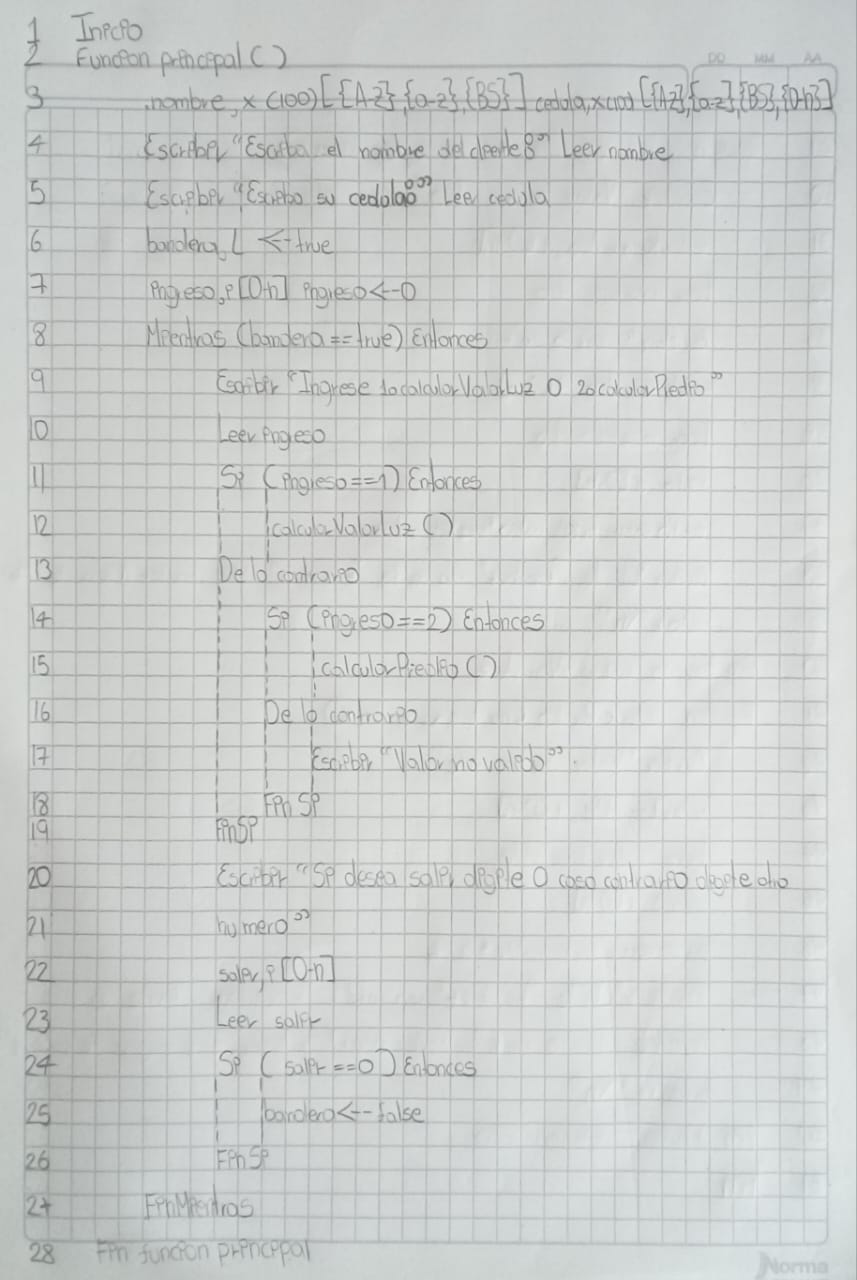 DD MM AA
1 Inicio
2 Funcion principal ( )
3 nombre, x (100) [{A-z},{a-z},{BS}] cedula, x(10) [{A-z},{a-z},{BS},{0-n}]
4 Escribir "Escriba el nombre del cliente:" Leer nombre
5 Escribir "Escriba su cedula:" Leer cedula
6 bandera, L <-- true
7 ingreso, i [0-n] ingreso <-- 0
8 Mientras (bandera == true) Entonces
9 Escribir "Ingrese 1:calcularValorLuz O 2:calcularPredio"
10 Leer ingreso
11 Si (ingreso==1) Entonces
12 calcularValorLuz ( )
13 De lo contrario
14 Si (ingreso==2) Entonces
15 calcularPredio ( )
16 De lo contrario
17 Escribir "Valor no valido".
18 Fin Si
19 FinSi
20 Escribir "Si desea salir digite 0 caso contrario digite otro
21 numero"
22 salir, i [0-n]
23 Leer salir
24 Si ( salir ==0 ) Entonces
25 bandera <-- false
26 Fin Si
27 FinMientras
28 Fin funcion principal
Norma